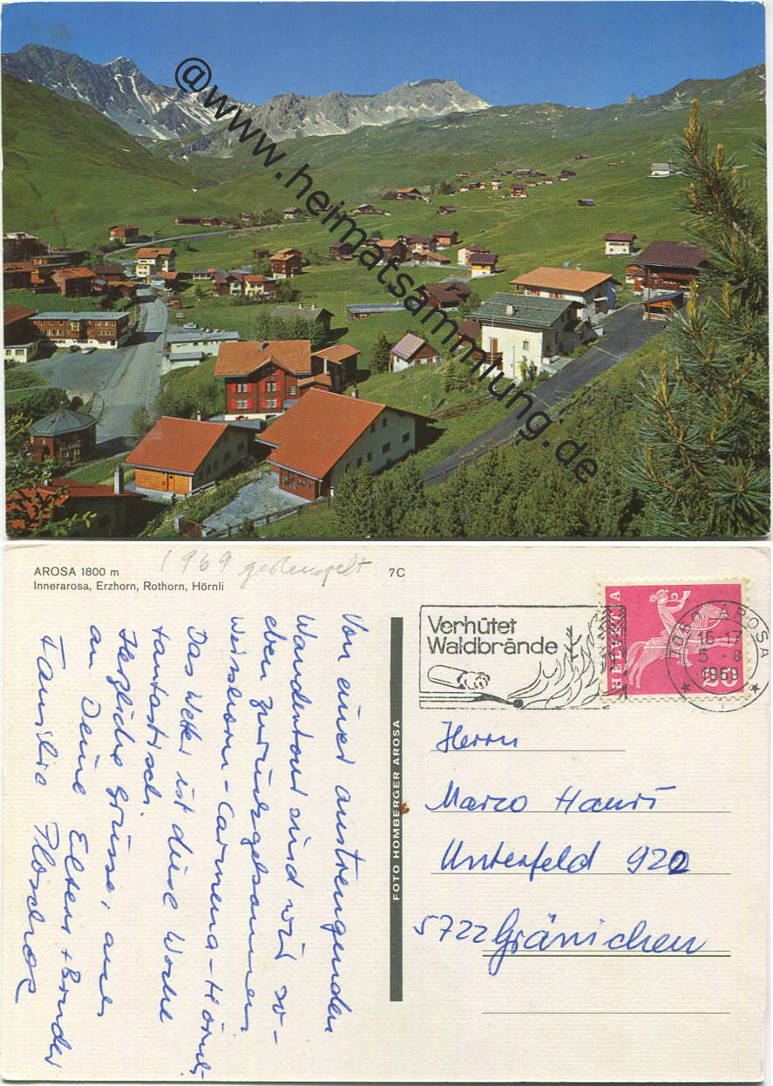 @www.heimatsammlung.de
AROSA 1800 m
Innerarosa, Erzhorn, Rothorn, Hörnli
1969 gestempelt
7C
Von einer anstrengenden
Wandertour sind wir so-
eben zurückgekommen
Weisshorn-Carmena-Hörnli.
Das Wetter ist diese Woche
fantastisch.
Herzliche Grüsse, auch
an Deine Eltern + Bruder
Familie
FOTO HOMBERGER AROSA
Verhütet
Waldbrände
HELVETIA
20
7050 AROSA
16-17
5.-8
1969
Herrn
Marco Hauri
Unterfeld 920
5722 Gränichen